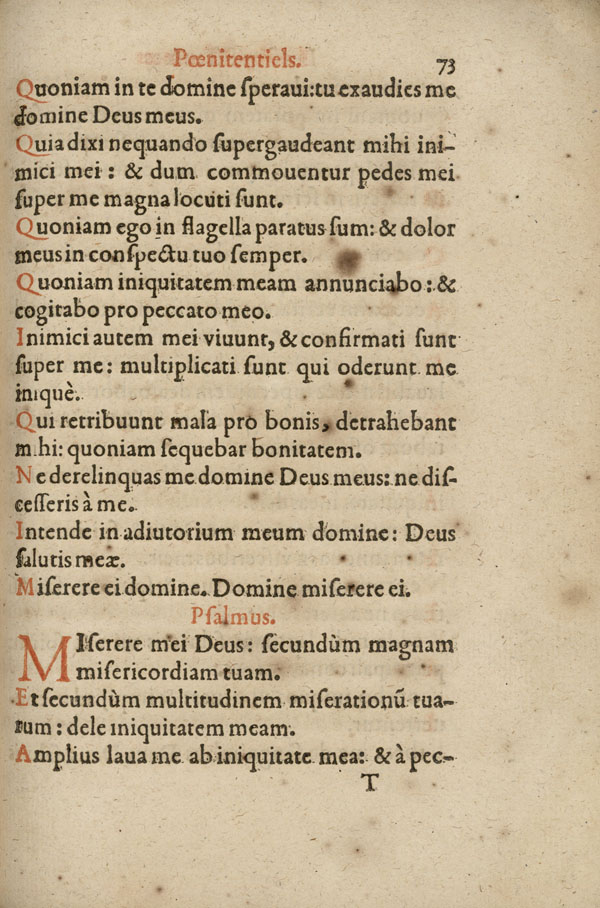 Pœnitentiels. 73
Quoniam in te domine ſperaui: tu exaudies me
domine Deus meus.
Quia dixi nequando ſupergaudeant mihi ini-
mici mei : & dum commouentur pedes mei
ſuper me magna locuti ſunt.
Quoniam ego in flagella paratus ſum: & dolor
meus in conſpectu tuo ſemper.
Quoniam iniquitatem meam annunciabo : &
cogitabo pro peccato meo.
Inimici autem mei viuunt, & confirmati ſunt
ſuper me: multiplicati ſunt qui oderunt me
iniquè.
Qui retribuunt mala pro bonis, detrahebant
mihi: quoniam ſequebar bonitatem.
Ne derelinquas me domine Deus meus: ne diſ-
ceſſeris à me.
Intende in adiutorium meum domine: Deus
ſalutis meæ.
Miſerere ei domine. Domine miſerere ei.
Pſalmus.
MIſerere mei Deus: ſecundùm magnam
miſericordiam tuam.
Et ſecundùm multitudinem miſerationū tua-
rum : dele iniquitatem meam.
Amplius laua me ab iniquitate mea: & à pec-
T